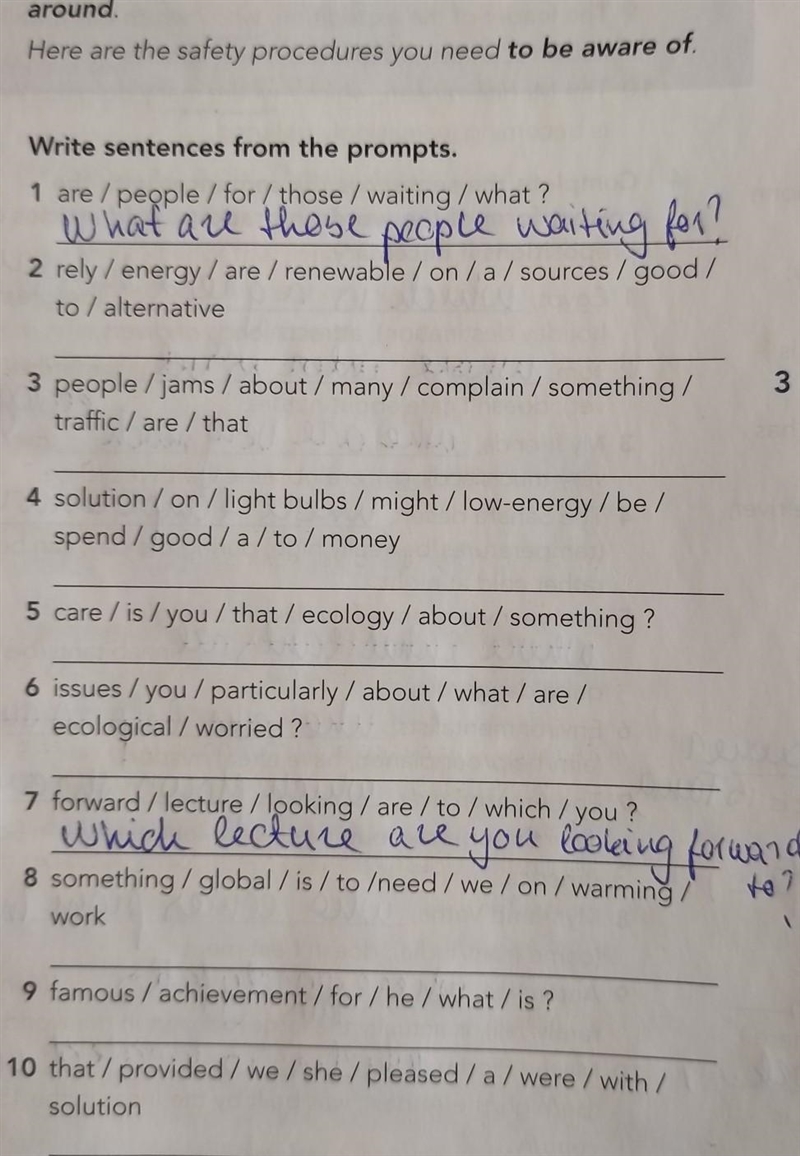 around.
Here are the safety procedures you need to be aware of.
Write sentences from the prompts.
1 are / people / for / those / waiting / what ?
What are those people waiting for?
2 rely / energy / are / renewable / on / a / sources / good /
to / alternative
3 people / jams / about / many / complain / something /
traffic / are / that
3
4 solution / on / light bulbs / might / low-energy / be /
spend / good / a / to / money
5 care / is / you / that / ecology / about / something ?
6 issues / you / particularly / about / what / are /
ecological / worried ?
7 forward / lecture / looking / are / to / which / you ?
Which lecture are you looking forward
to?
8 something / global / is / to /need / we / on / warming /
work
9 famous / achievement / for / he / what / is ?
10 that / provided / we / she / pleased / a / were / with /
solution